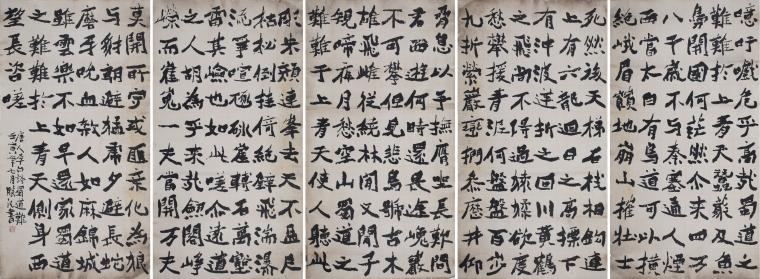 噫吁嚱危乎高哉蜀道
之難難於上青天蠶叢及魚
鳧開國何茫然爾來四萬
八千歲不與秦塞通人烟
西當太白有鳥道可以橫
絕峨眉巔地崩山摧壯士
死然後天梯石棧相鉤連
上有六龍迴日之高標下
有沖波逆折之回川黃鶴
之飛尚不得過猿猱欲度
愁攀援青泥何盤盤百步
九折縈巖巒捫參歷井仰
脅息以手撫膺坐長歎問
君西遊何時還畏途巉巖
不可攀但見悲鳥號古木
雄飛雌從繞林間又聞子
規啼夜月愁空山蜀道之
難難於上青天使人聽此
彫朱顏連峯去天不盈尺
枯松倒挂倚絕壁飛湍瀑
流爭喧豗砯崖轉石萬壑
雷其嶮也如此嗟爾遠道
之人胡為乎來哉劍閣崢
嶸而崔嵬一夫當關萬夫
莫開所守或匪親化為狼
與豺朝避猛虎夕避長蛇
磨牙吮血殺人如麻錦城
雖雲樂不如早還家蜀道
之難難於上青天側身西
望長咨嗟
唐人李白詩蜀道難
年七月書